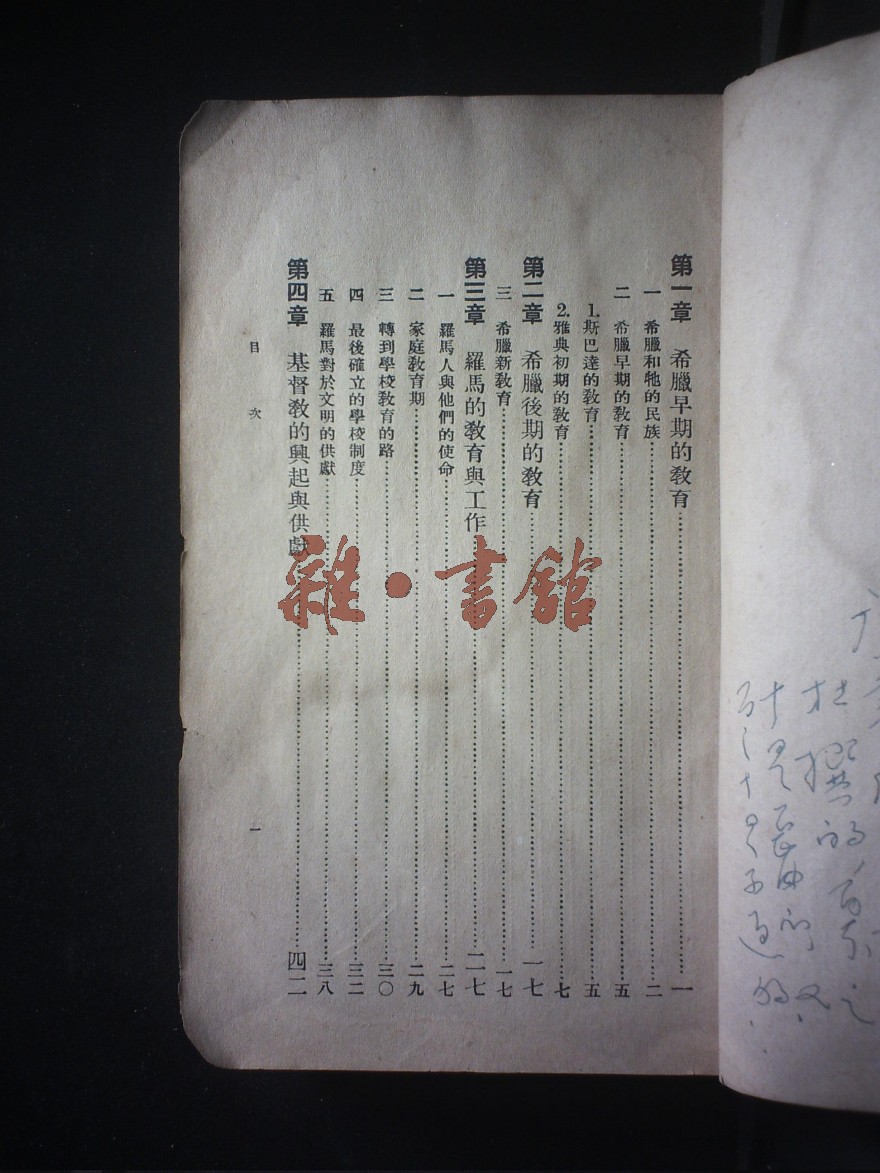 第一章　希臘早期的教育…………一
一　希臘和牠的民族…………二
二　希臘早期的教育…………五
1.斯巴達的教育…………五
2.雅典初期的教育…………七
第二章　希臘後期的教育…………一七
三　希臘新教育…………一七
第三章　羅馬的教育與工作…………二七
一　羅馬人與他們的使命…………二七
二　家庭教育期…………二九
三　轉到學校教育的路…………三〇
四　最後確立的學校制度…………三二
五　羅馬對於文明的供獻…………三八
第四章　基督教的興起與供獻…………四二
目次
一
雜·書館
杜撰的